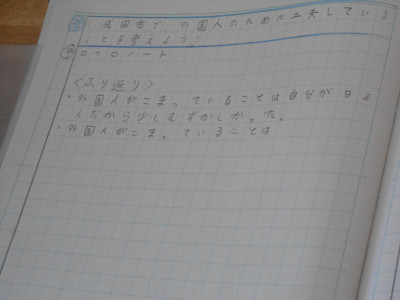 成田市で、外国人のために工夫している
ことを考えよう。
ロイロノート
<ふり返り>
・外国人がこまっていることは自分が日本
人だから少しむずかしかった。
・外国人がこまっていることは